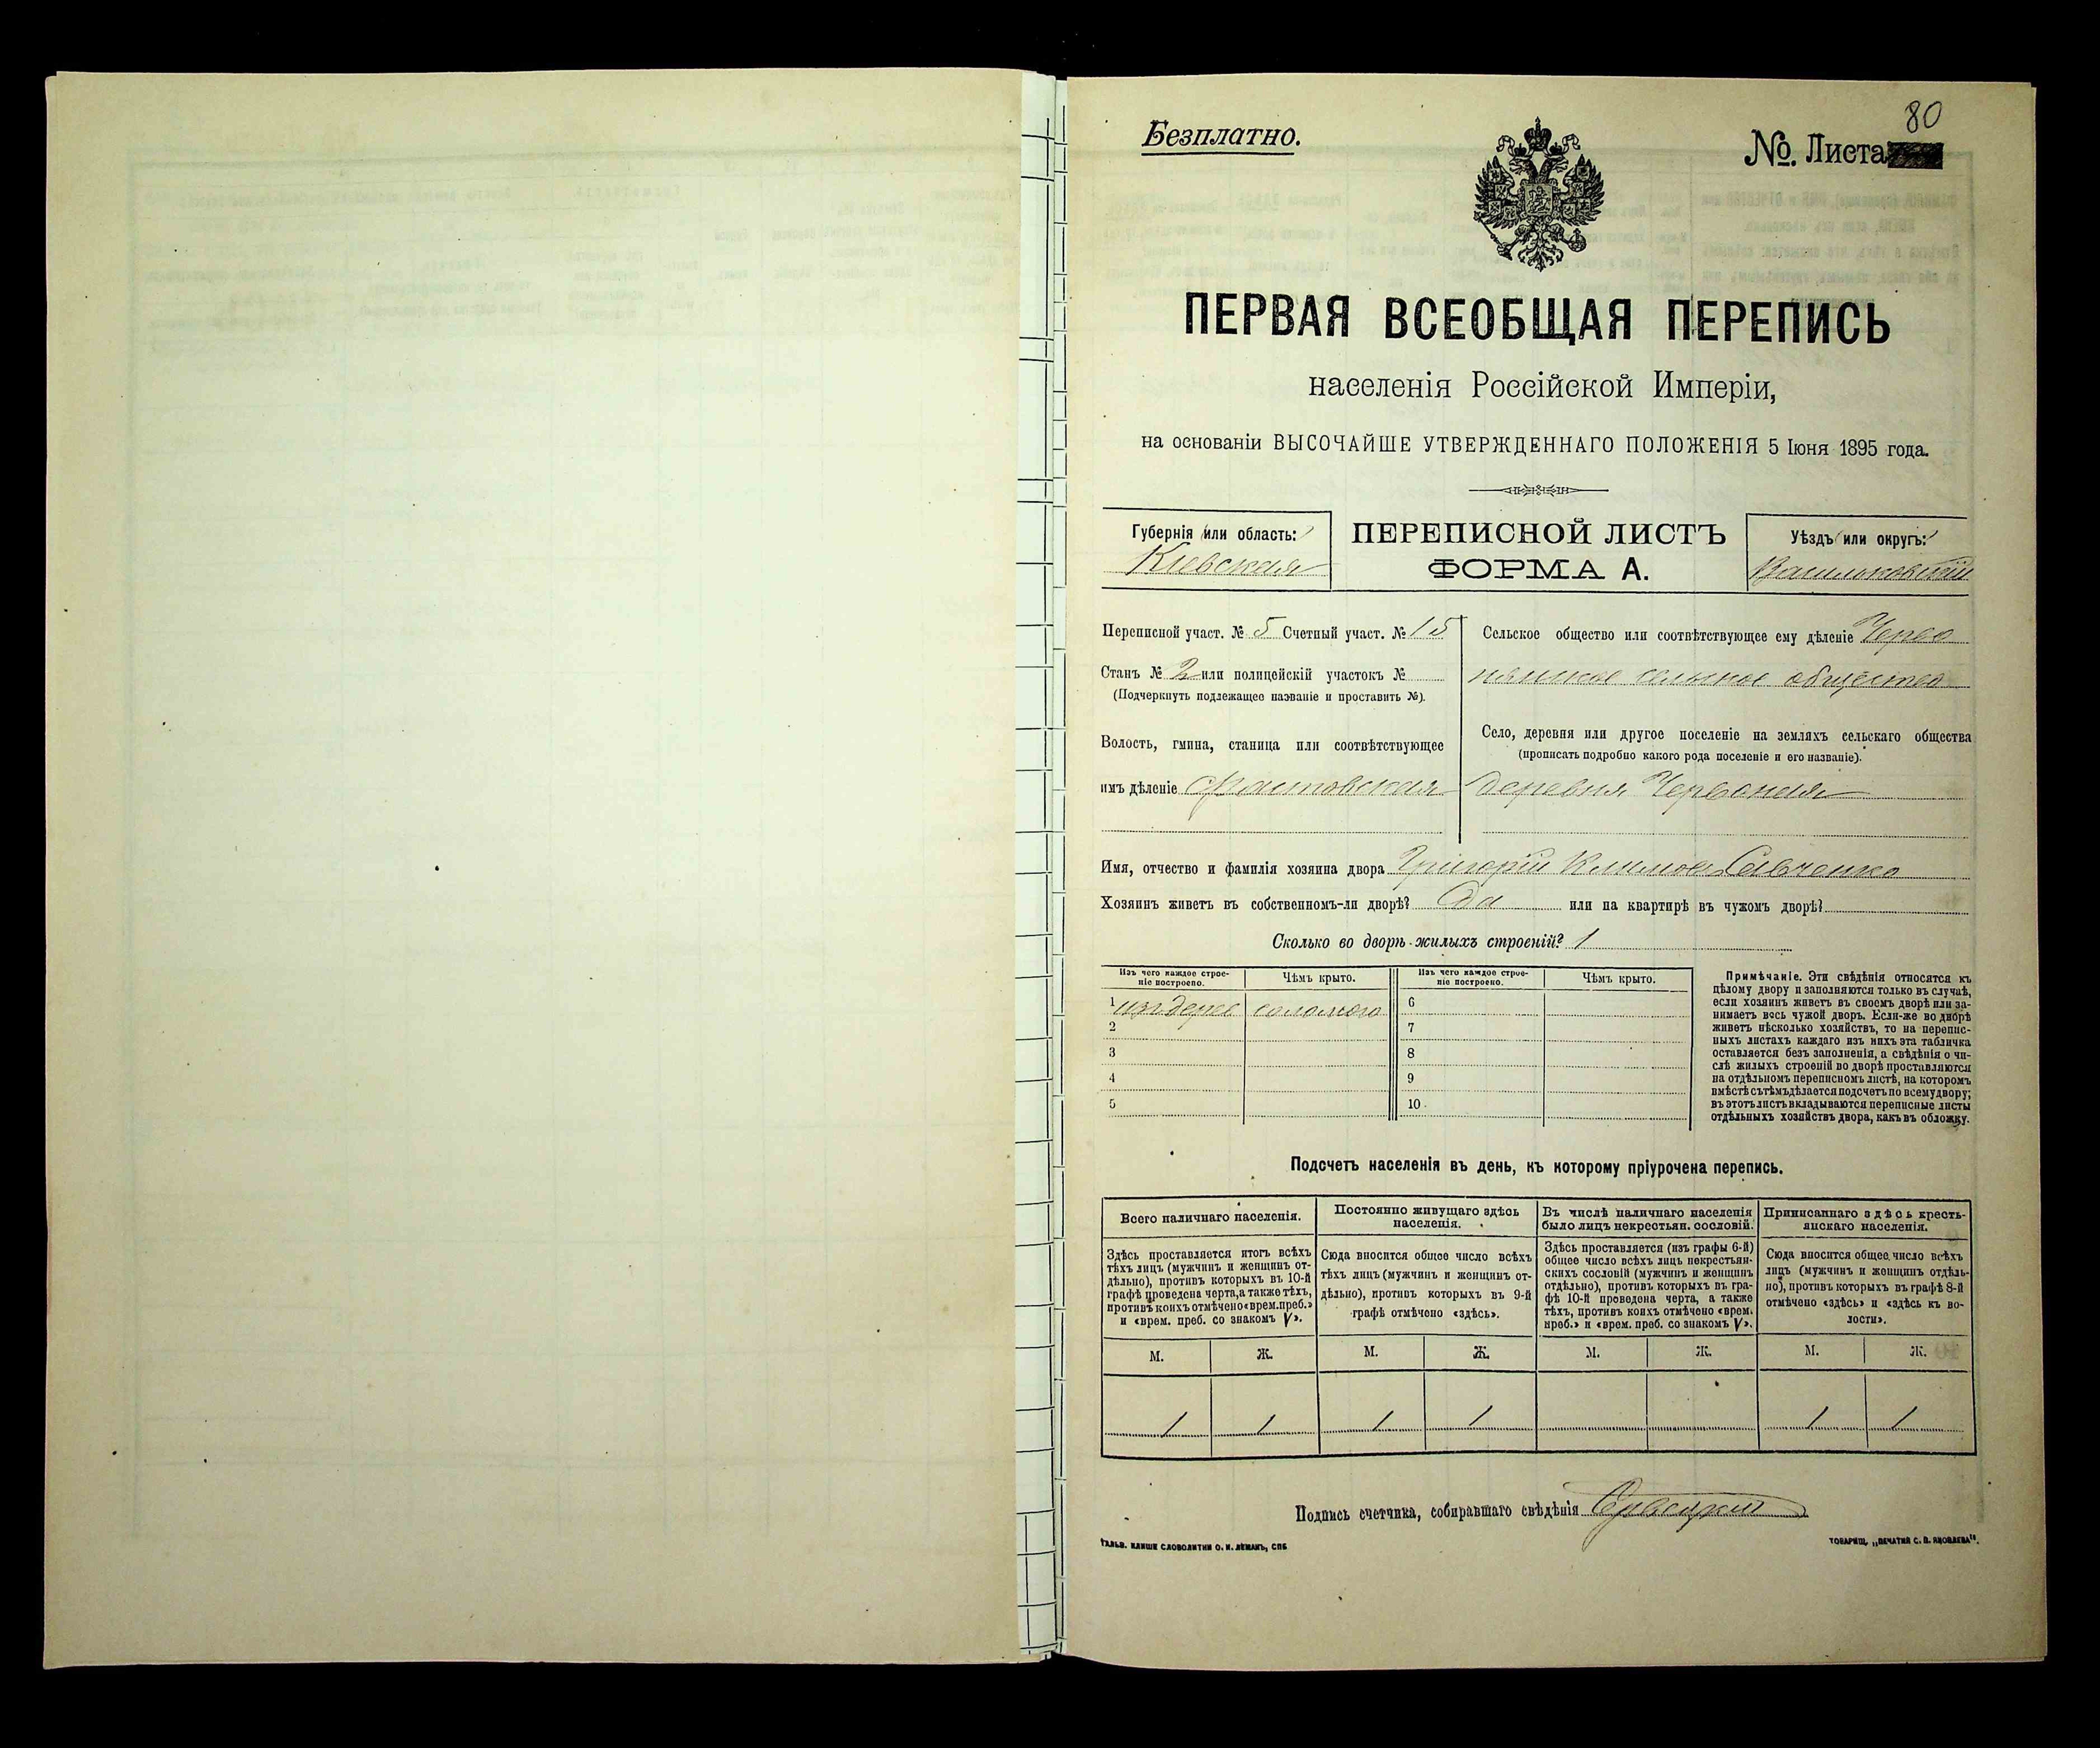 80
Безплатно.
№. Листа
ПЕРВАЯ ВСЕОБЩАЯ ПЕРЕПИСЬ
населенія Россійской Имперіи,
на основаніи ВЫСОЧАЙШЕ УТВЕРЖДЕННАГО ПОЛОЖЕНІЯ 5 Іюня 1895 года.
Губернія или область:
Кіевская
ПЕРЕПИСНОЙ ЛИСТЪ
ФОРМА А.
Уѣздъ или округъ:
Васильковскій
Переписной участ. № 5 Счетный участ. № 15
Станъ № 2 или полицейскій участокъ №
(Подчеркнуть подлежащее названіе и проставить №).
Волость, гмина, станица или соотвѣтствующее
имъ дѣленіе Фастовская
Сельское общество или соотвѣтствующее ему дѣленіе Черво
нянское сельское общество
Село, деревня или другое поселеніе на земляхъ сельскаго общества
(прописать подробно какого рода поселеніе и его названіе).
деревня Червоная
Имя, отчество и фамилія хозяина двора Григорій Климов Савченко
Хозяинъ живетъ въ собственномъ-ли дворѣ? Да или на квартирѣ въ чужомъ дворѣ?
Сколько во дворѣ жилыхъ строеній? 1
Изъ чего каждое строе-
ніе построено.
Чѣмъ крыто.
Изъ чего каждое строе-
ніе построено.
Чѣмъ крыто.
1 изъ дерев соломою 6
2 7
3 8
4 9
5 10
Примѣчаніе. Эти свѣдѣнія относятся къ
цѣлому двору и заполняются только въ случаѣ,
если хозяинъ живетъ въ своемъ дворѣ или за-
нимаетъ весь чужой дворъ. Если-же во дворѣ
живетъ нѣсколько хозяйствъ, то на перепис-
ныхъ листахъ каждаго изъ нихъ эта табличка
оставляется безъ заполненія, а свѣдѣнія о чи-
слѣ жилыхъ строеній во дворѣ проставляются
на отдѣльномъ переписномъ листѣ, на которомъ
вмѣстѣ съ тѣмъ дѣлается подсчетъ по всему двору;
въ этотъ листъ вкладываются переписные листы
отдѣльныхъ хозяйствъ двора, какъ въ обложку.
Подсчетъ населенія въ день, къ которому пріурочена перепись.
Всего наличнаго населенія.
Здѣсь проставляется итогъ всѣхъ
тѣхъ лицъ (мужчинъ и женщинъ от-
дѣльно), противъ которыхъ въ 10-й
графѣ проведена черта, а также тѣхъ,
противъ коихъ отмѣчено «врем. преб.»
и «врем. преб. со знакомъ V».
Постоянно живущаго здѣсь
населенія.
Сюда вносится общее число всѣхъ
тѣхъ лицъ (мужчинъ и женщинъ от-
дѣльно), противъ которыхъ въ 9-й
графѣ отмѣчено «здѣсь».
Въ числѣ наличнаго населенія
было лицъ некрестьян. сословій.
Здѣсь проставляется (изъ графы 6-й)
общее число всѣхъ лицъ некрестьян-
скихъ сословій (мужчинъ и женщинъ
отдѣльно), противъ которыхъ въ гра-
фѣ 10-й проведена черта, а также
тѣхъ, противъ коихъ отмѣчено «врем.
преб.» и «врем. преб. со знакомъ V».
Приписаннаго здѣсь кресть-
янскаго населенія.
Сюда вносится общее число всѣхъ
лицъ (мужчинъ и женщинъ отдѣль-
но), противъ которыхъ въ графѣ 8-й
отмѣчено «здѣсь» и «здѣсь къ во-
лости».
М. Ж. М. Ж. М. Ж. М. Ж.
1 1 1 1 1 1
Подпись счетчика, собиравшаго свѣдѣнія
ГАЛЬВ. КЛИШЕ СЛОВОЛИТНИ О. И. ЛЕМАНЪ, СПБ
ТОВАРИЩ. „ПЕЧАТНЯ С. П. ЯКОВЛЕВА".